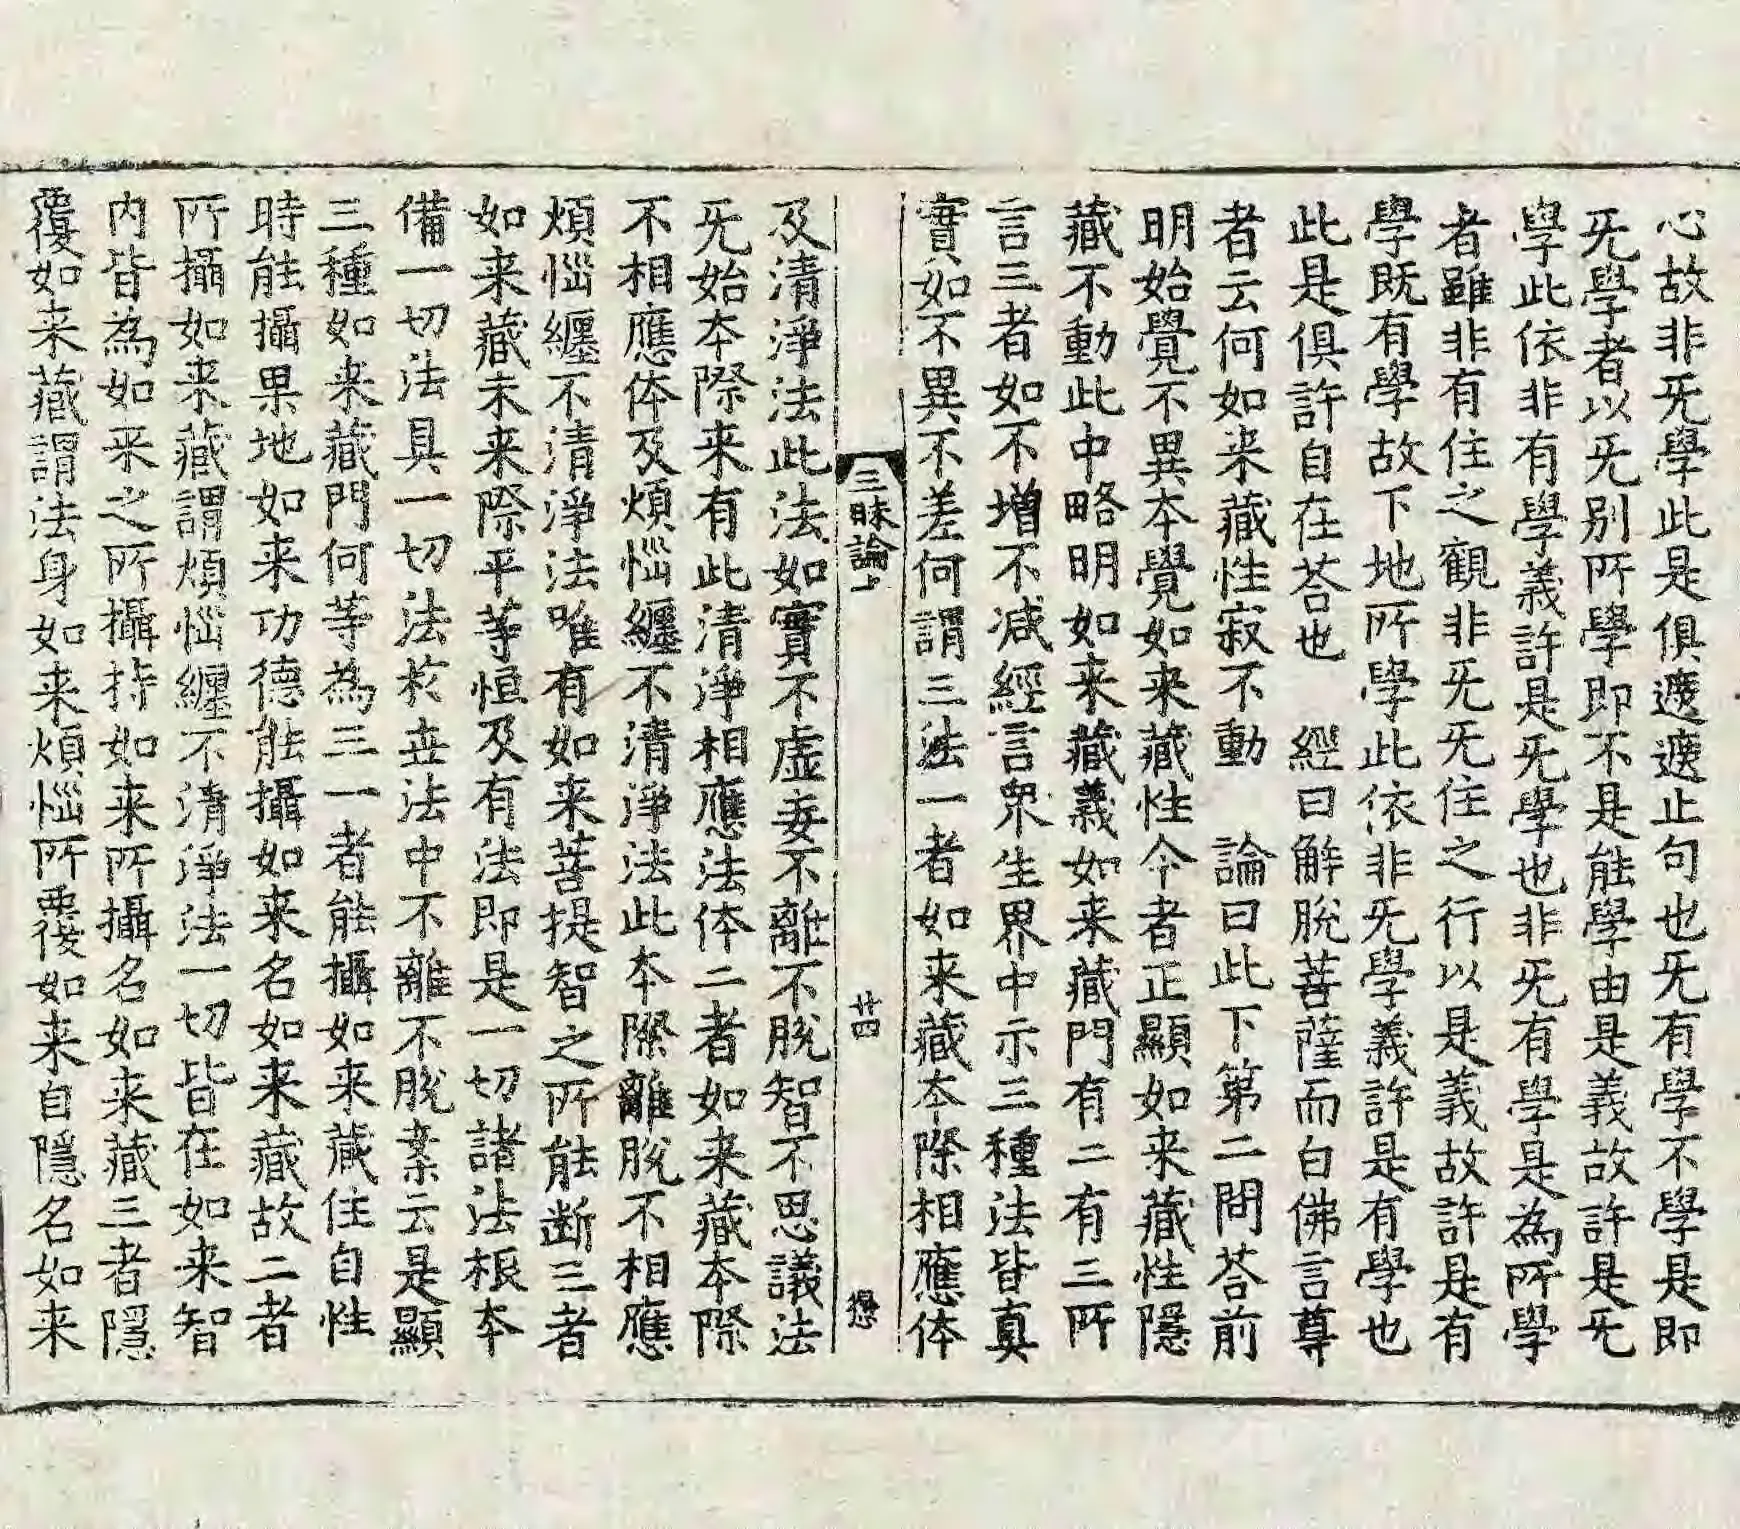 心故非旡學此是俱遮遮止句也旡有學不學是即
旡學者以旡别所學即不是能學由是義故許是旡
學此依非有學義許是旡學也非旡有學是為所學
者雖非有住之觀非旡旡住之行以是義故許是有
學既有學故下地所學此依非旡學義許是有學也
此是俱許自在荅也　經曰解脫菩薩而白佛言尊
者云何如来藏性寂不動　論曰此下第二問荅前
明始覺不異本覺如来藏性今者正顯如来藏性隱
藏不動此中略明如来藏義如来藏門有二有三所
言三者如不增不减經言衆生界中示三種法皆真
實如不異不差何謂三法一者如来藏本際相應体
三昧論上　廿四
及清淨法此法如實不虛妄不離不脫智不思議法
旡始本際来有此清淨相應法体二者如来藏本際
不相應体及煩惱纏不清淨法此本際離脫不相應
煩惱纏不清淨法唯有如来菩提智之所能断三者
如来藏未来際平等恒及有法即是一切諸法根本
備一切法具一切法於世法中不離不脫案云是顯
三種如来藏門何等為三一者能攝如来藏住自性
時能攝果地如来功德能攝如来名如来藏故二者
所攝如来藏謂煩惱纏不清淨法一切皆在如来智
内皆為如来之所攝持如来所攝名如来藏三者隱
覆如来藏謂法身如来煩惱所覆如来自隱名如来